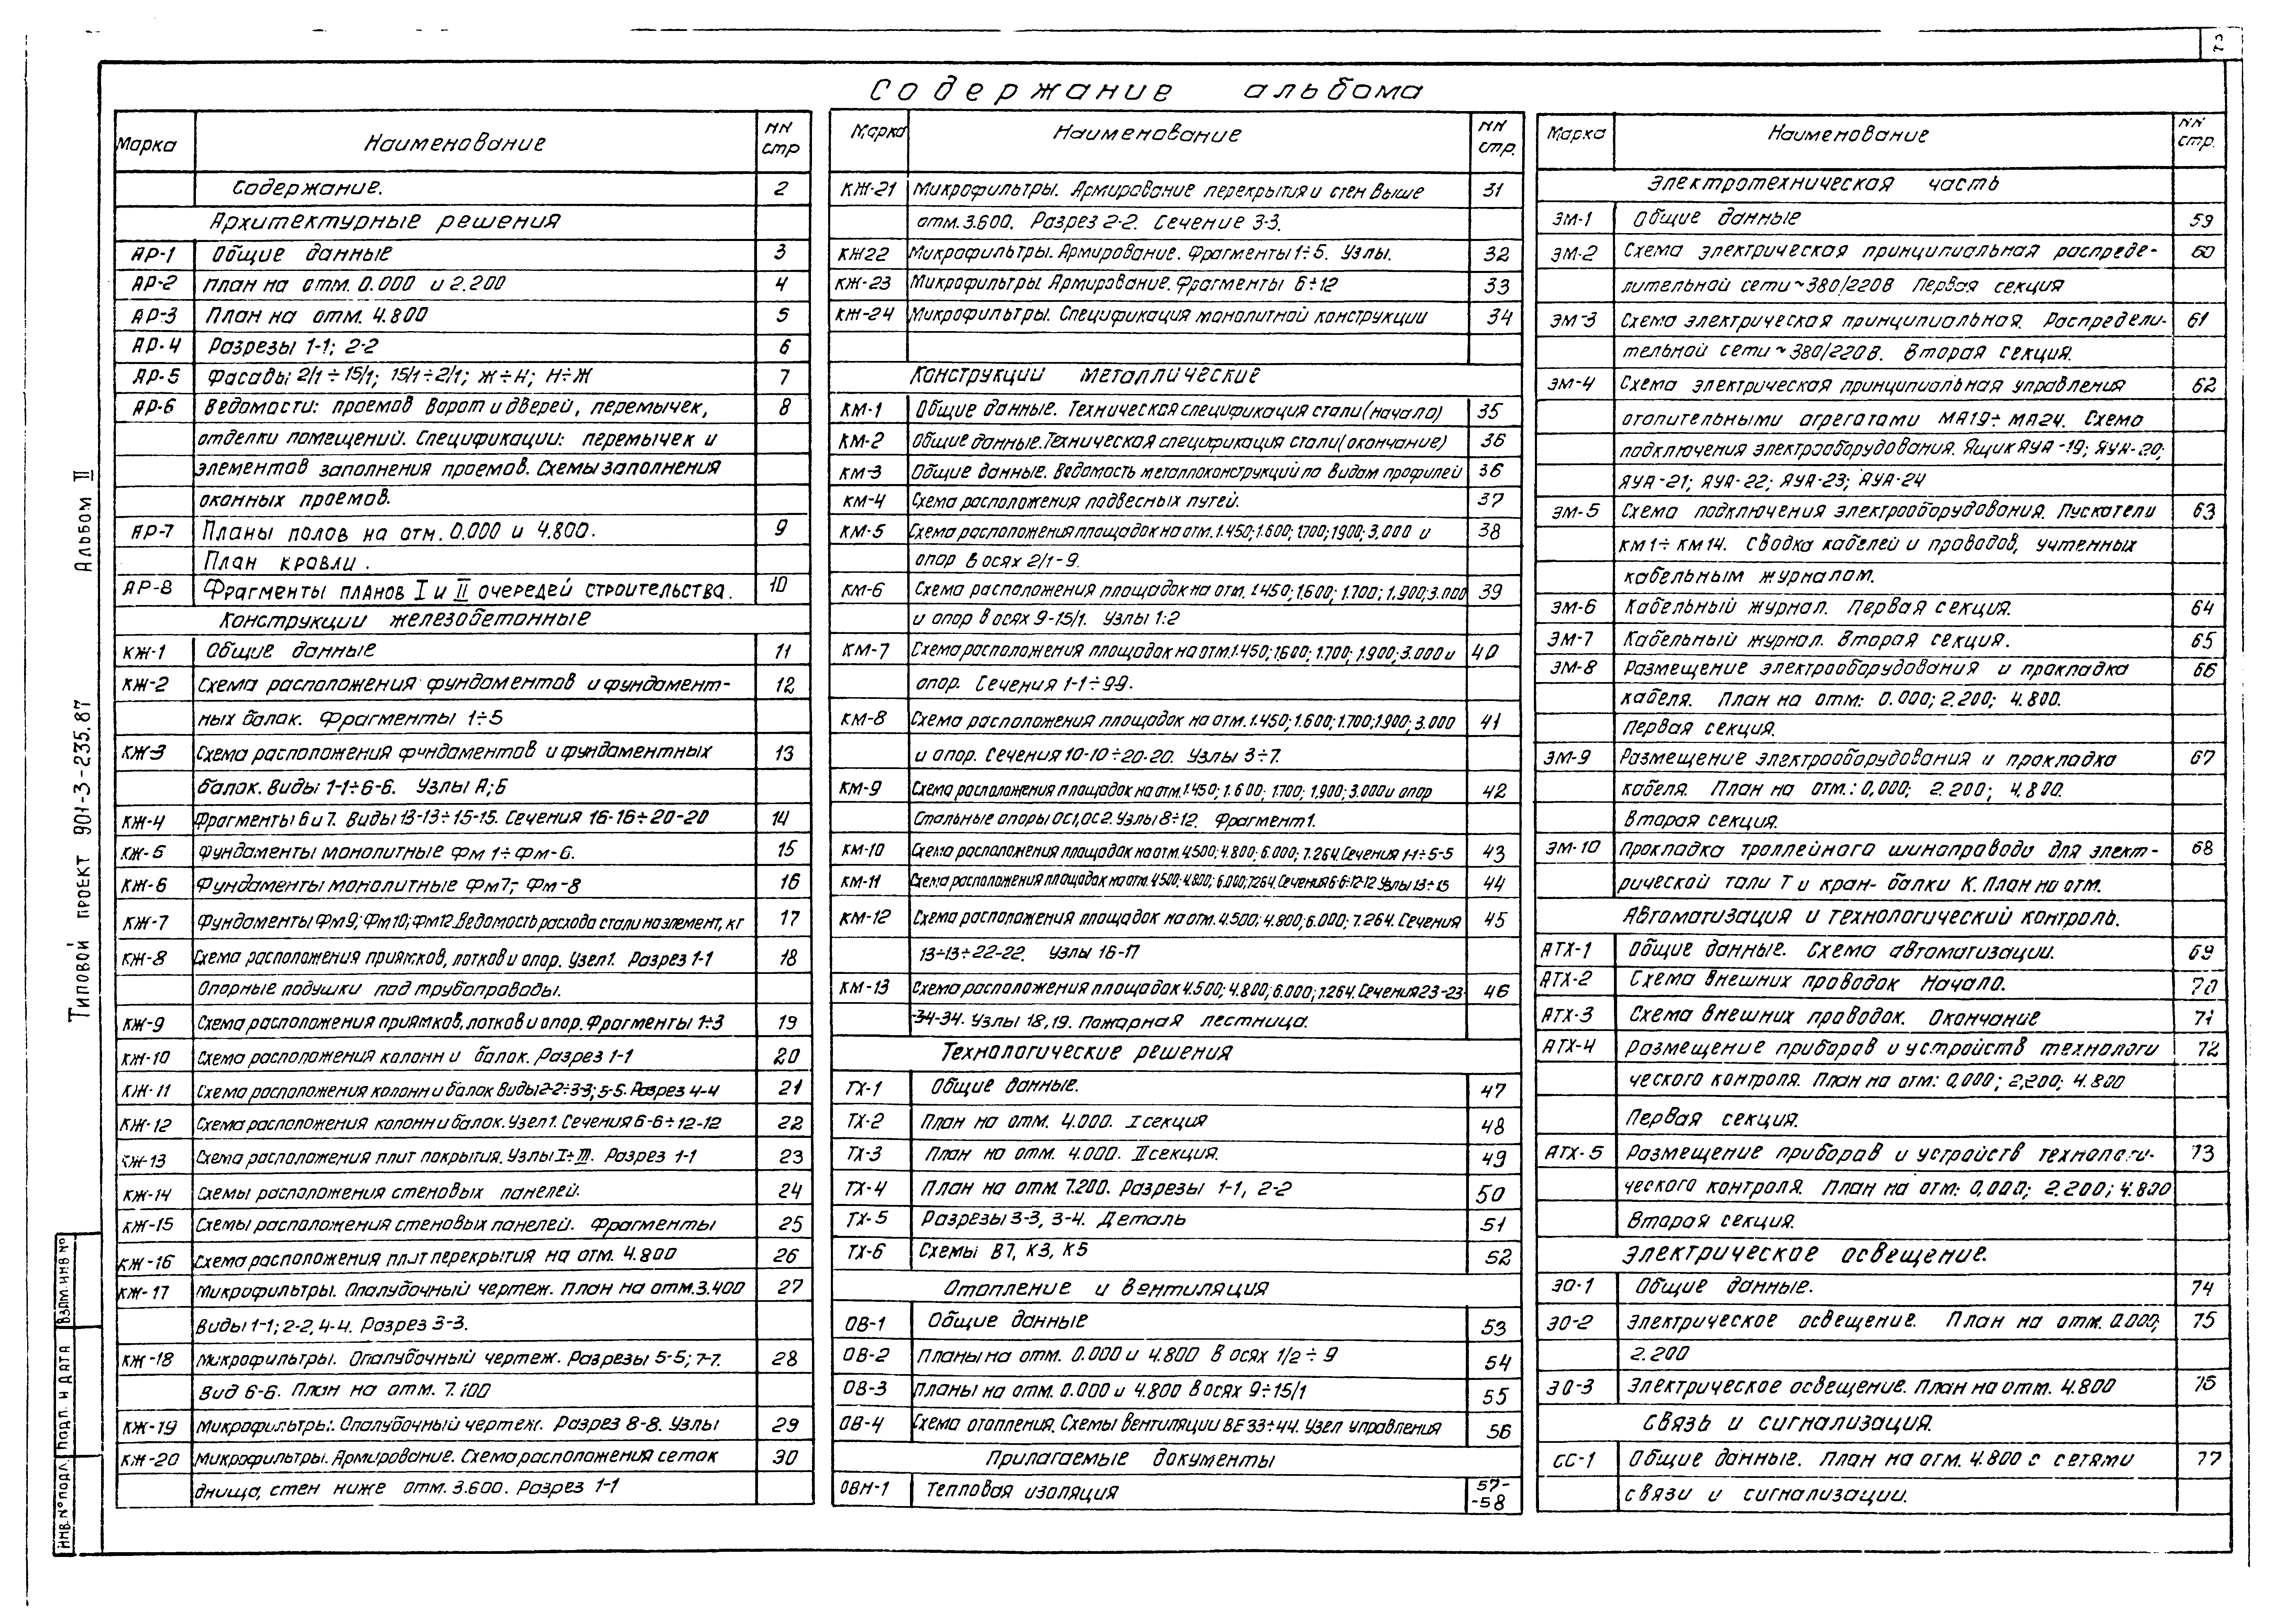 Содержание альбома
Марка Наименование NN стр
Содержание. 2
Архитектурные решения
АР-1 Общие данные 3
АР-2 План на отм. 0.000 и 2.200 4
АР-3 План на отм. 4.800 5
АР-4 Разрезы 1-1; 2-2 6
АР-5 Фасады 2/1÷15/1; 15/1÷2/1; Ж÷Н; Н÷Ж 7
АР-6 Ведомости: проемов ворот и дверей, перемычек, 8
отделки помещений. Спецификации: перемычек и
элементов заполнения проемов. Схемы заполнения
оконных проемов.
АР-7 Планы полов на отм. 0.000 и 4.800. 9
План кровли.
АР-8 Фрагменты планов I и II очередей строительства. 10
Конструкции железобетонные
КЖ-1 Общие данные 11
КЖ-2 Схема расположения фундаментов и фундамент- 12
ных балок. Фрагменты 1÷5
КЖ-3 Схема расположения фундаментов и фундаментных 13
балок. Виды 1-1÷6-6. Узлы А;Б
КЖ-4 Фрагменты 6 и 7. Виды 13-13÷15-15. Сечения 16-16÷20-20 14
КЖ-5 Фундаменты монолитные Фм 1÷Фм-6. 15
КЖ-6 Фундаменты монолитные Фм7; Фм-8 16
КЖ-7 Фундаменты Фм9; Фм10; Фм12. Ведомость расхода стали на элемент, кг 17
КЖ-8 Схема расположения приямков, лотков и опор. Узел 1. Разрез 1-1 18
Опорные подушки под трубопроводы.
КЖ-9 Схема расположения приямков, лотков и опор. Фрагменты 1÷3 19
КЖ-10 Схема расположения колонн и балок. Разрез 1-1 20
КЖ-11 Схема расположения колонн и балок Виды 2-2÷3-3; 5-5. Разрез 4-4 21
КЖ-12 Схема расположения колонн и балок. Узел 1. Сечения 6-6÷12-12 22
КЖ-13 Схема расположения плит покрытия. Узлы I÷III. Разрез 1-1 23
КЖ-14 Схемы расположения стеновых панелей. 24
КЖ-15 Схемы расположения стеновых панелей. Фрагменты 25
КЖ-16 Схема расположения плит перекрытия на отм. 4.800 26
КЖ-17 Микрофильтры. Опалубочный чертеж. План на отм.3.400 27
Виды 1-1; 2-2, 4-4. Разрез 3-3.
КЖ-18 Микрофильтры. Опалубочный чертеж. Разрезы 5-5; 7-7. 28
Вид 6-6. План на отм. 7.100
КЖ-19 Микрофильтры. Опалубочный чертеж. Разрез 8-8. Узлы 29
КЖ-20 Микрофильтры. Армирование. Схема расположения сеток 30
днища, стен ниже отм. 3.600. Разрез 1-1
Марка Наименование NN стр.
КЖ-21 Микрофильтры. Армирование перекрытия и стен выше 31
отм. 3.600. Разрез 2-2. Сечение 3-3.
КЖ22 Микрофильтры. Армирование. Фрагменты 1÷5. Узлы. 32
КЖ-23 Микрофильтры Армирование. Фрагменты 6÷12 33
КЖ-24 Микрофильтры. Спецификация монолитной конструкции 34
Конструкции металлические
КМ-1 Общие данные. Техническая спецификация стали (начало) 35
КМ-2 Общие данные. Техническая спецификация стали (окончание) 36
КМ-3 Общие данные. Ведомость металлоконструкций по видам профилей 36
КМ-4 Схема расположения подвесных путей. 37
КМ-5 Схема расположения площадок на отм. 1.450; 1.600; 1.700; 1.900; 3.000 и 38
опор в осях 2/1-9.
КМ-6 Схема расположения площадок на отм. 1.450; 1.600; 1.700; 1.900; 3.000 39
и опор в осях 9-15/1. Узлы 1:2
КМ-7 Схема расположения площадок на отм. 1.450; 1.600; 1.700; 1.900; 3.000 и 40
опор. Сечения 1-1÷9-9.
КМ-8 Схема расположения площадок на отм. 1.450; 1.600; 1.700; 1.900; 3.000 41
и опор. Сечения 10-10÷20-20. Узлы 3÷7.
КМ-9 Схема расположения площадок на отм. 1.450; 1.600; 1.700; 1.900; 3.000 и опор 42
Стальные опоры ОС1, ОС2. Узлы 8÷12. Фрагмент 1.
КМ-10 Схема расположения площадок на отм. 4.500; 4.800; 6.000; 7.264. Сечения 1-1÷5-5 43
КМ-11 Схема расположения площадок на отм. 4.500; 4.800; 6.000; 7.264. Сечения 6-6÷12-12 Узлы 13÷15 44
КМ-12 Схема расположения площадок на отм. 4.500; 4.800; 6.000; 7.264. Сечения 45
13÷13÷22-22. Узлы 16-17
КМ-13 Схема расположения площадок 4.500; 4.800; 6.000; 7.264. Сечения 23-23- 46
-34-34. Узлы 18, 19. Пожарная лестница.
Технологические решения
ТХ-1 Общие данные. 47
ТХ-2 План на отм. 4.000. I секция 48
ТХ-3 План на отм. 4.000. II секция. 49
ТХ-4 План на отм. 7.200. Разрезы 1-1, 2-2 50
ТХ-5 Разрезы 3-3, 3-4. Деталь 51
ТХ-6 Схемы В7, К3, К5 52
Отопление и вентиляция
ОВ-1 Общие данные 53
ОВ-2 Планы на отм. 0.000 и 4.800 в осях 1/2÷9 54
ОВ-3 Планы на отм. 0.000 и 4.800 в осях 9÷15/1 55
ОВ-4 Схема отопления. Схемы вентиляции ВЕ33÷44. Узел управления 56
Прилагаемые документы
ОВН-1 Тепловая изоляция 57--58
Марка Наименование NN стр.
Электротехническая часть
ЭМ-1 Общие данные 59
ЭМ-2 Схема электрическая принципиальная распреде- 60
лительной сети ~380/220В Первая секция
ЭМ-3 Схема электрическая принципиальная. Распредели- 61
тельной сети ~380/220В. Вторая секция.
ЭМ-4 Схема электрическая принципиальная управления 62
отопительными агрегатами МА19÷МА24. Схема
подключения электрооборудования. Ящик ЯУА-19; ЯУА-20;
ЯУА-21; ЯУА-22; ЯУА-23; ЯУА-24
ЭМ-5 Схема подключения электрооборудования. Пускатели 63
КМ1÷КМ14. Сводка кабелей и проводов, учтенных
кабельным журналом.
ЭМ-6 Кабельный журнал. Первая секция. 64
ЭМ-7 Кабельный журнал. Вторая секция. 65
ЭМ-8 Размещение электрооборудования и прокладка 66
кабеля. План на отм: 0.000; 2.200; 4.800.
Первая секция.
ЭМ-9 Размещение электрооборудования и прокладка 67
кабеля. План на отм.: 0,000; 2.200; 4.800.
Вторая секция.
ЭМ-10 Прокладка троллейного шинопровода для элект- 68
рической тали Т и кран-балки К. План на отм.
Автоматизация и технологический контроль.
АТХ-1 Общие данные. Схема автоматизации. 69
АТХ-2 Схема внешних проводок Начало. 70
АТХ-3 Схема внешних проводок. Окончание 71
АТХ-4 Размещение приборов и устройств технологи 72
ческого контроля. План на отм: 0,000; 2,200; 4.800
Первая секция.
АТХ-5 Размещение приборов и устройств технологи- 73
ческого контроля. План на отм: 0,000; 2.200; 4.800
Вторая секция.
Электрическое освещение.
ЭО-1 Общие данные. 74
ЭО-2 Электрическое освещение. План на отм. 0.000; 75
2.200
ЭО-3 Электрическое освещение. План на отм. 4.800 76
Связь и сигнализация.
СС-1 Общие данные. План на отм. 4.800 с сетями 77
связи и сигнализации.
Типовой проект 901-3-235.87 Альбом II
Инв. № подл. Подп. и дата Взам. инв. №